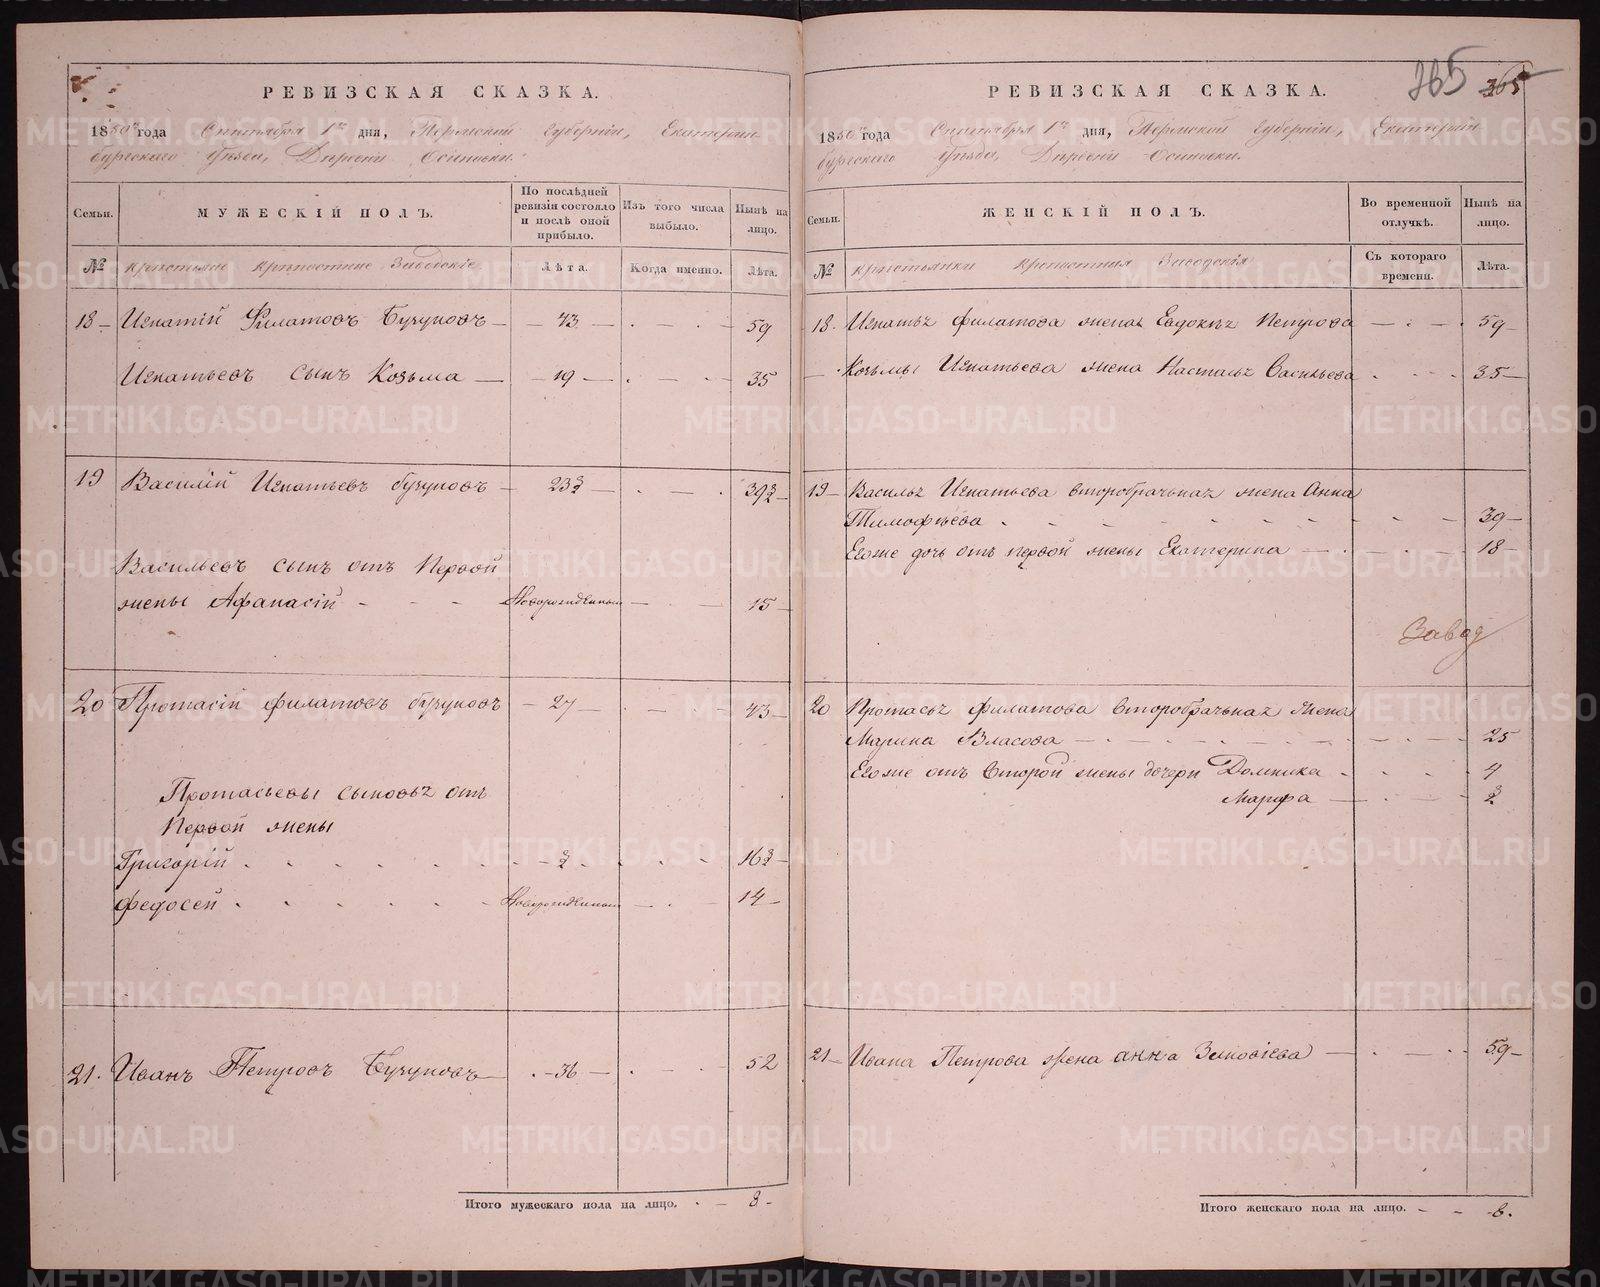 365 365
РЕВИЗСКАЯ СКАЗКА.
1850 года Сентября 1го дня, Пермской Губерніи, Екатерин
бургскаго Уѣзда, Деревни Осиновки.
Семьи.
МУЖЕСКІЙ ПОЛЪ.
По послѣдней ревизіи состояло и послѣ оной прибыло.
Изъ того числа выбыло.
Нынѣ на лицо.
№ крестьяне крѣпостные Заводскіе
Лѣта. Когда именно. Лѣта.
18 – Игнатій Филатовъ Бучуновъ – 43 – 59
Игнатьевъ сынъ Козьма – 19 – 35
19 Василій Игнатьевъ бучуновъ – 23 3/2 – 39 3/2
Васильевъ сынъ отъ Первой
жены Афанасій – Новорожденный – 15
20 Протасій филатовъ бучуновъ – 27 – 43
Протасьевы сыновья отъ
Первой жены
Григорій 3/2 16 3/2
федосей Новорожденный – 14
21. Иванъ Петровъ Бучуновъ – 36 – 52
Итого мужескаго пола на лицо. 8
РЕВИЗСКАЯ СКАЗКА.
1850 года Сентября 1го дня, Пермской Губерніи, Екатерин
бургскаго Уѣзда, Деревни Осиновки.
Семьи.
ЖЕНСКІЙ ПОЛЪ.
Во временной отлучкѣ.
Нынѣ на лицо.
№ крестьянки крепостныя Заводскія
Съ котораго времени. Лѣта.
18. Игнатья филатова жена Евдокия Петрова – 59
Козьмы Игнатьева жена Настасья Васильева 35
19 – Василья Игнатьева второбрачная жена Анна
Тимофѣева – 39
Егоже дочь отъ первой жены Екатерина – 18
Завод
20 Протасья филатова второбрачная жена
Марина Власова – 25
Егоже отъ второй жены дочери Домника 4
Марфа 3/2
21 – Ивана Петрова жена анна Зиновіева – 59
Итого женскаго пола на лицо. – 8.
METRIKI.GASO-URAL.RU